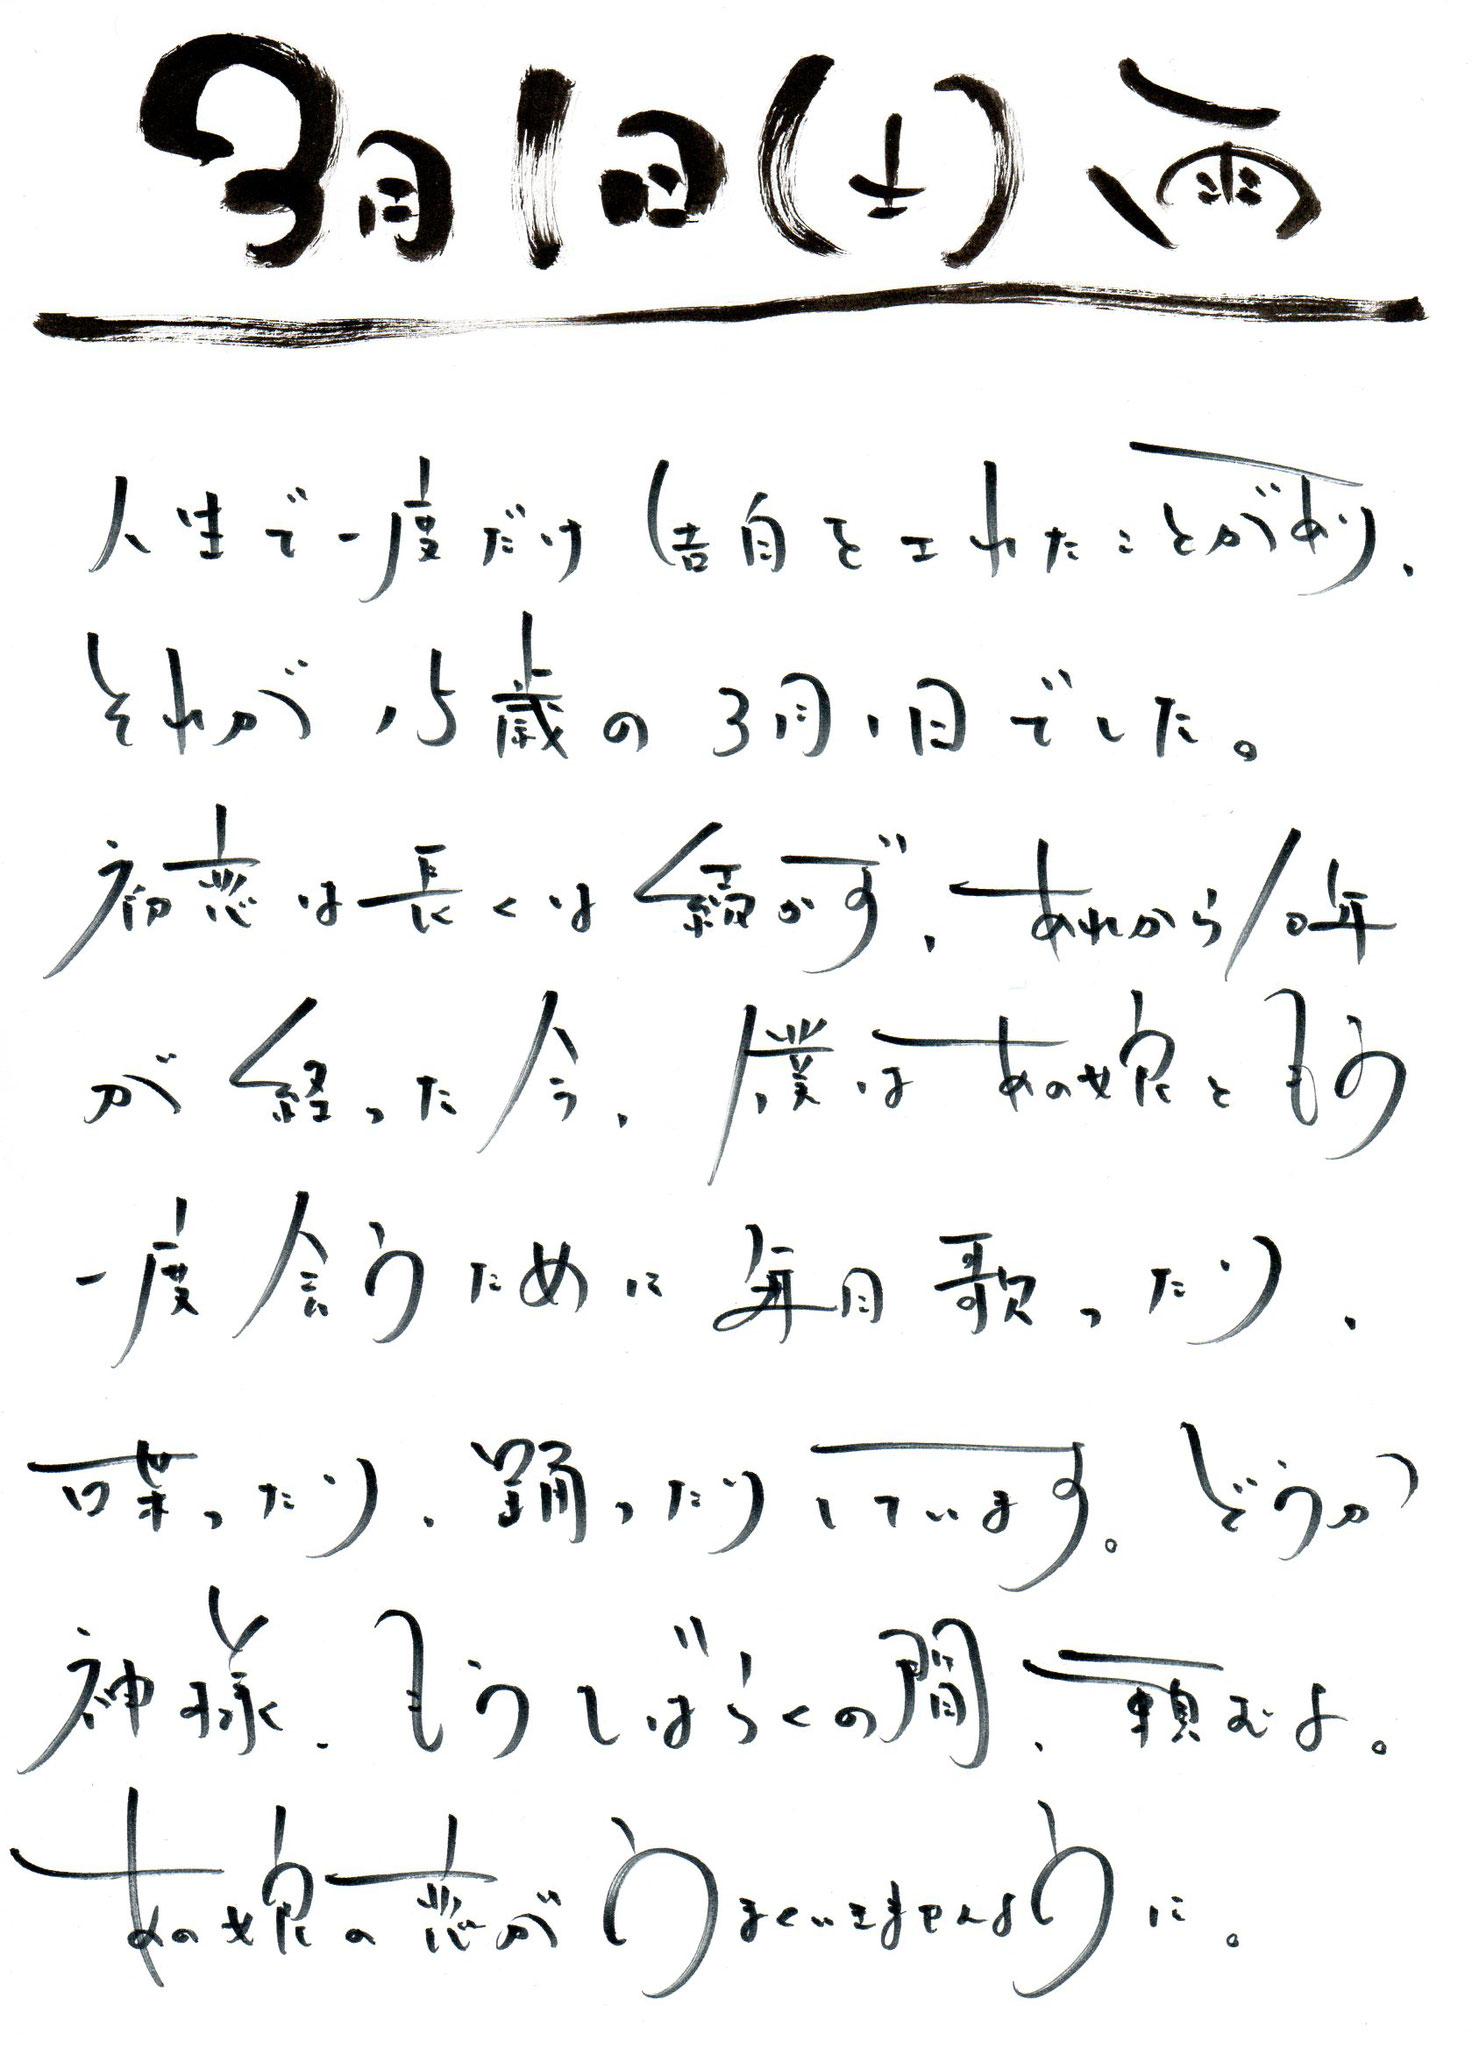 3月1日(土)雨
人生で一度だけ告白をされたことがあり、
それが15歳の3月1日でした。
初恋は長くは続かず、あれから10年
が経った今、僕はあの娘ともう
一度会うために毎日歌ったり、
喋ったり、踊ったりしています。どうか
神様、もうしばらくの間、頼むよ。
あの娘の恋がうまくいきませんように。